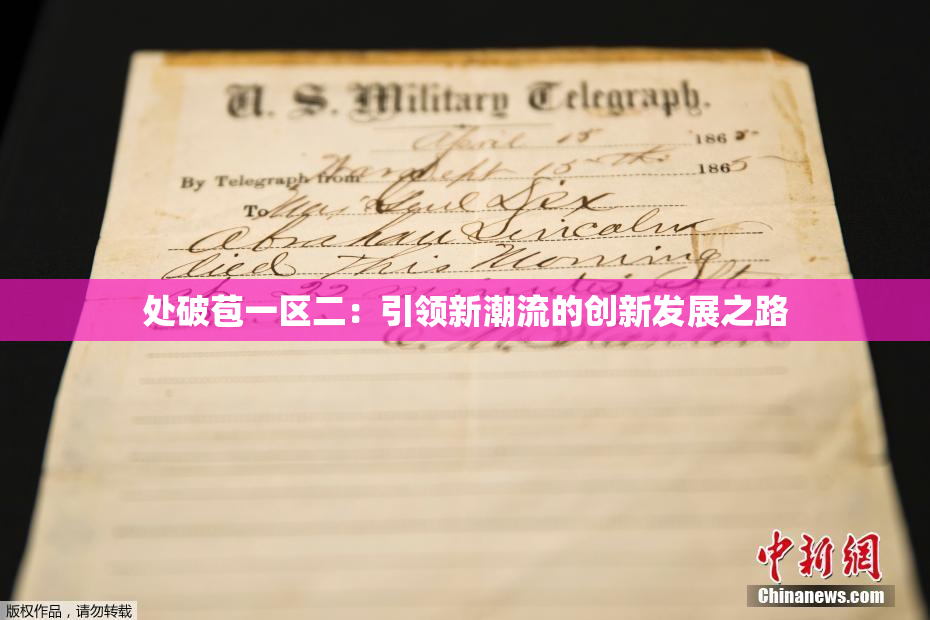 U. S. Military Telegraph.
April 15 1865.
By Telegraph from War Dept 15th 1865
To Maj Genl Dix
Abraham Lincoln
died This Morning
at 22 minutes after
处破苞一区二：引领新潮流的创新发展之路
E. M. Stanton
中新网
Chinanews.com
版权作品，请勿转载